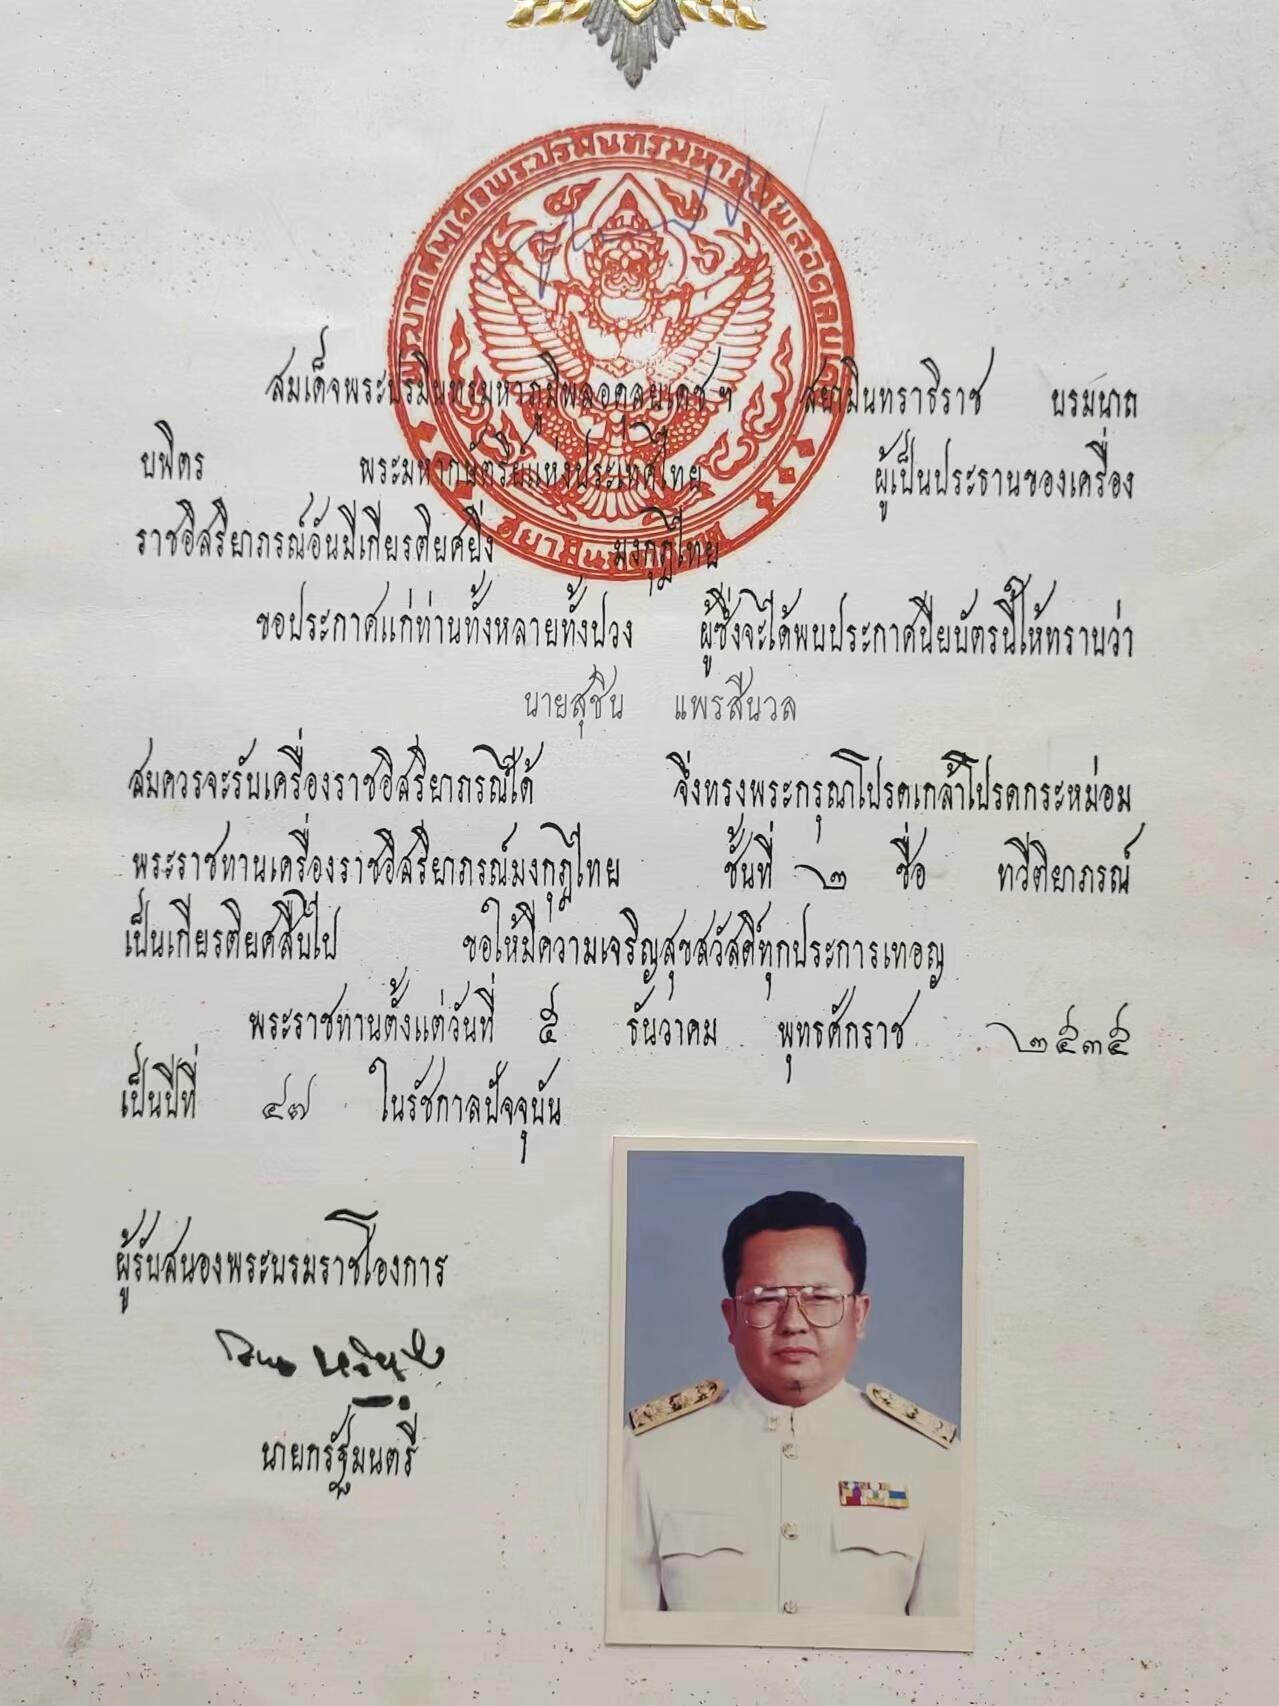 สมเด็จพระปรมินทรมหาภูมิพลอดุลยเดช ฯ สยามินทราธิราช บรมนาถ
บพิตร พระมหากษัตริย์แห่งประเทศไทย ผู้เป็นประธานของเครื่อง
ราชอิสริยาภรณ์อันมีเกียรติยศยิ่ง มงกุฎไทย
ขอประกาศแก่ท่านทั้งหลายทั้งปวง ผู้ซึ่งจะได้พบประกาศนียบัตรนี้ให้ทราบว่า
นายสุชิน แพรสีนวล
สมควรจะรับเครื่องราชอิสริยาภรณ์ได้ จึ่งทรงพระกรุณาโปรดเกล้าโปรดกระหม่อม
พระราชทานเครื่องราชอิสริยาภรณ์มงกุฎไทย ชั้นที่ ๒ ชื่อ ทวีติยาภรณ์
เป็นเกียรติยศสืบไป ขอให้มีความเจริญสุขสวัสดิ์ทุกประการเทอญ
พระราชทานตั้งแต่วันที่ ๕ ธันวาคม พุทธศักราช ๒๕๓๕
เป็นปีที่ ๔๗ ในรัชกาลปัจจุบัน
ผู้รับสนองพระบรมราชโองการ
นายกรัฐมนตรี